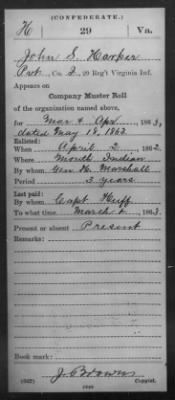 (CONFEDERATE.)
H 29 Va.
John S. Harper
Pvt., Co. I, 29 Reg't Virginia Inf.
Appears on
Company Muster Roll
of the organization named above,
for Mar & Apr, 1863,
dated May 18, 1863
Enlisted:
When April 2, 1862
Where Mouth Indian
By whom Gen H. Marshall
Period 3 years
Last paid:
By whom Capt Huff
To what time March 1, 1863
Present or absent Present
Remarks:
Book mark:
J. Browns
(642) Copyist.